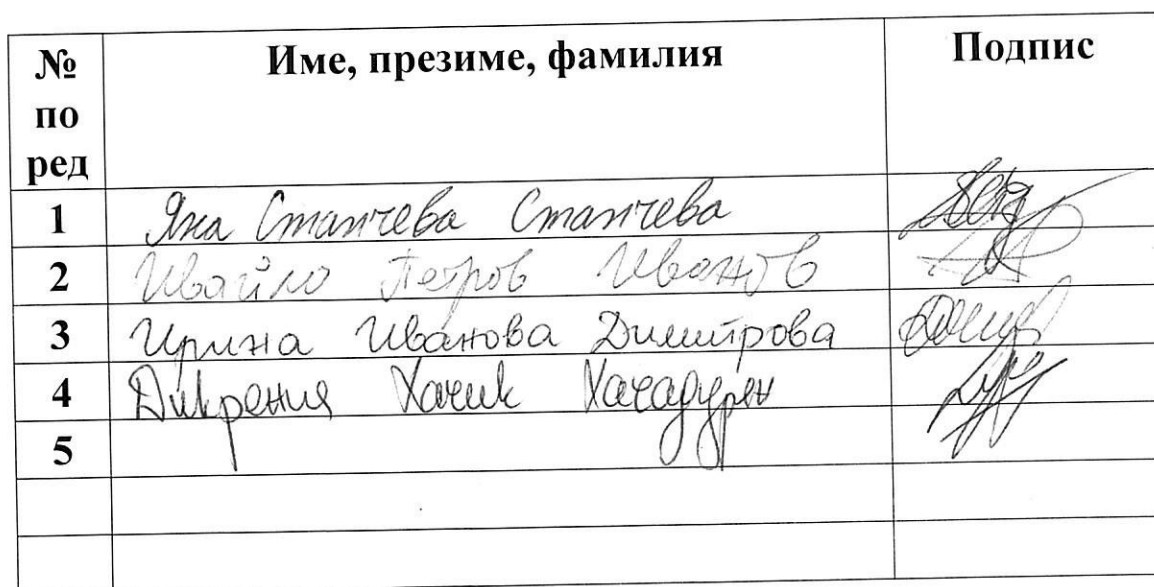 № по ред Име, презиме, фамилия Подпис
1 Яна Станчева Станчева
2 Ивайло Петров Иванов
3 Ирина Иванова Димитрова
4 Дикрения Хачик Хачадурян
5